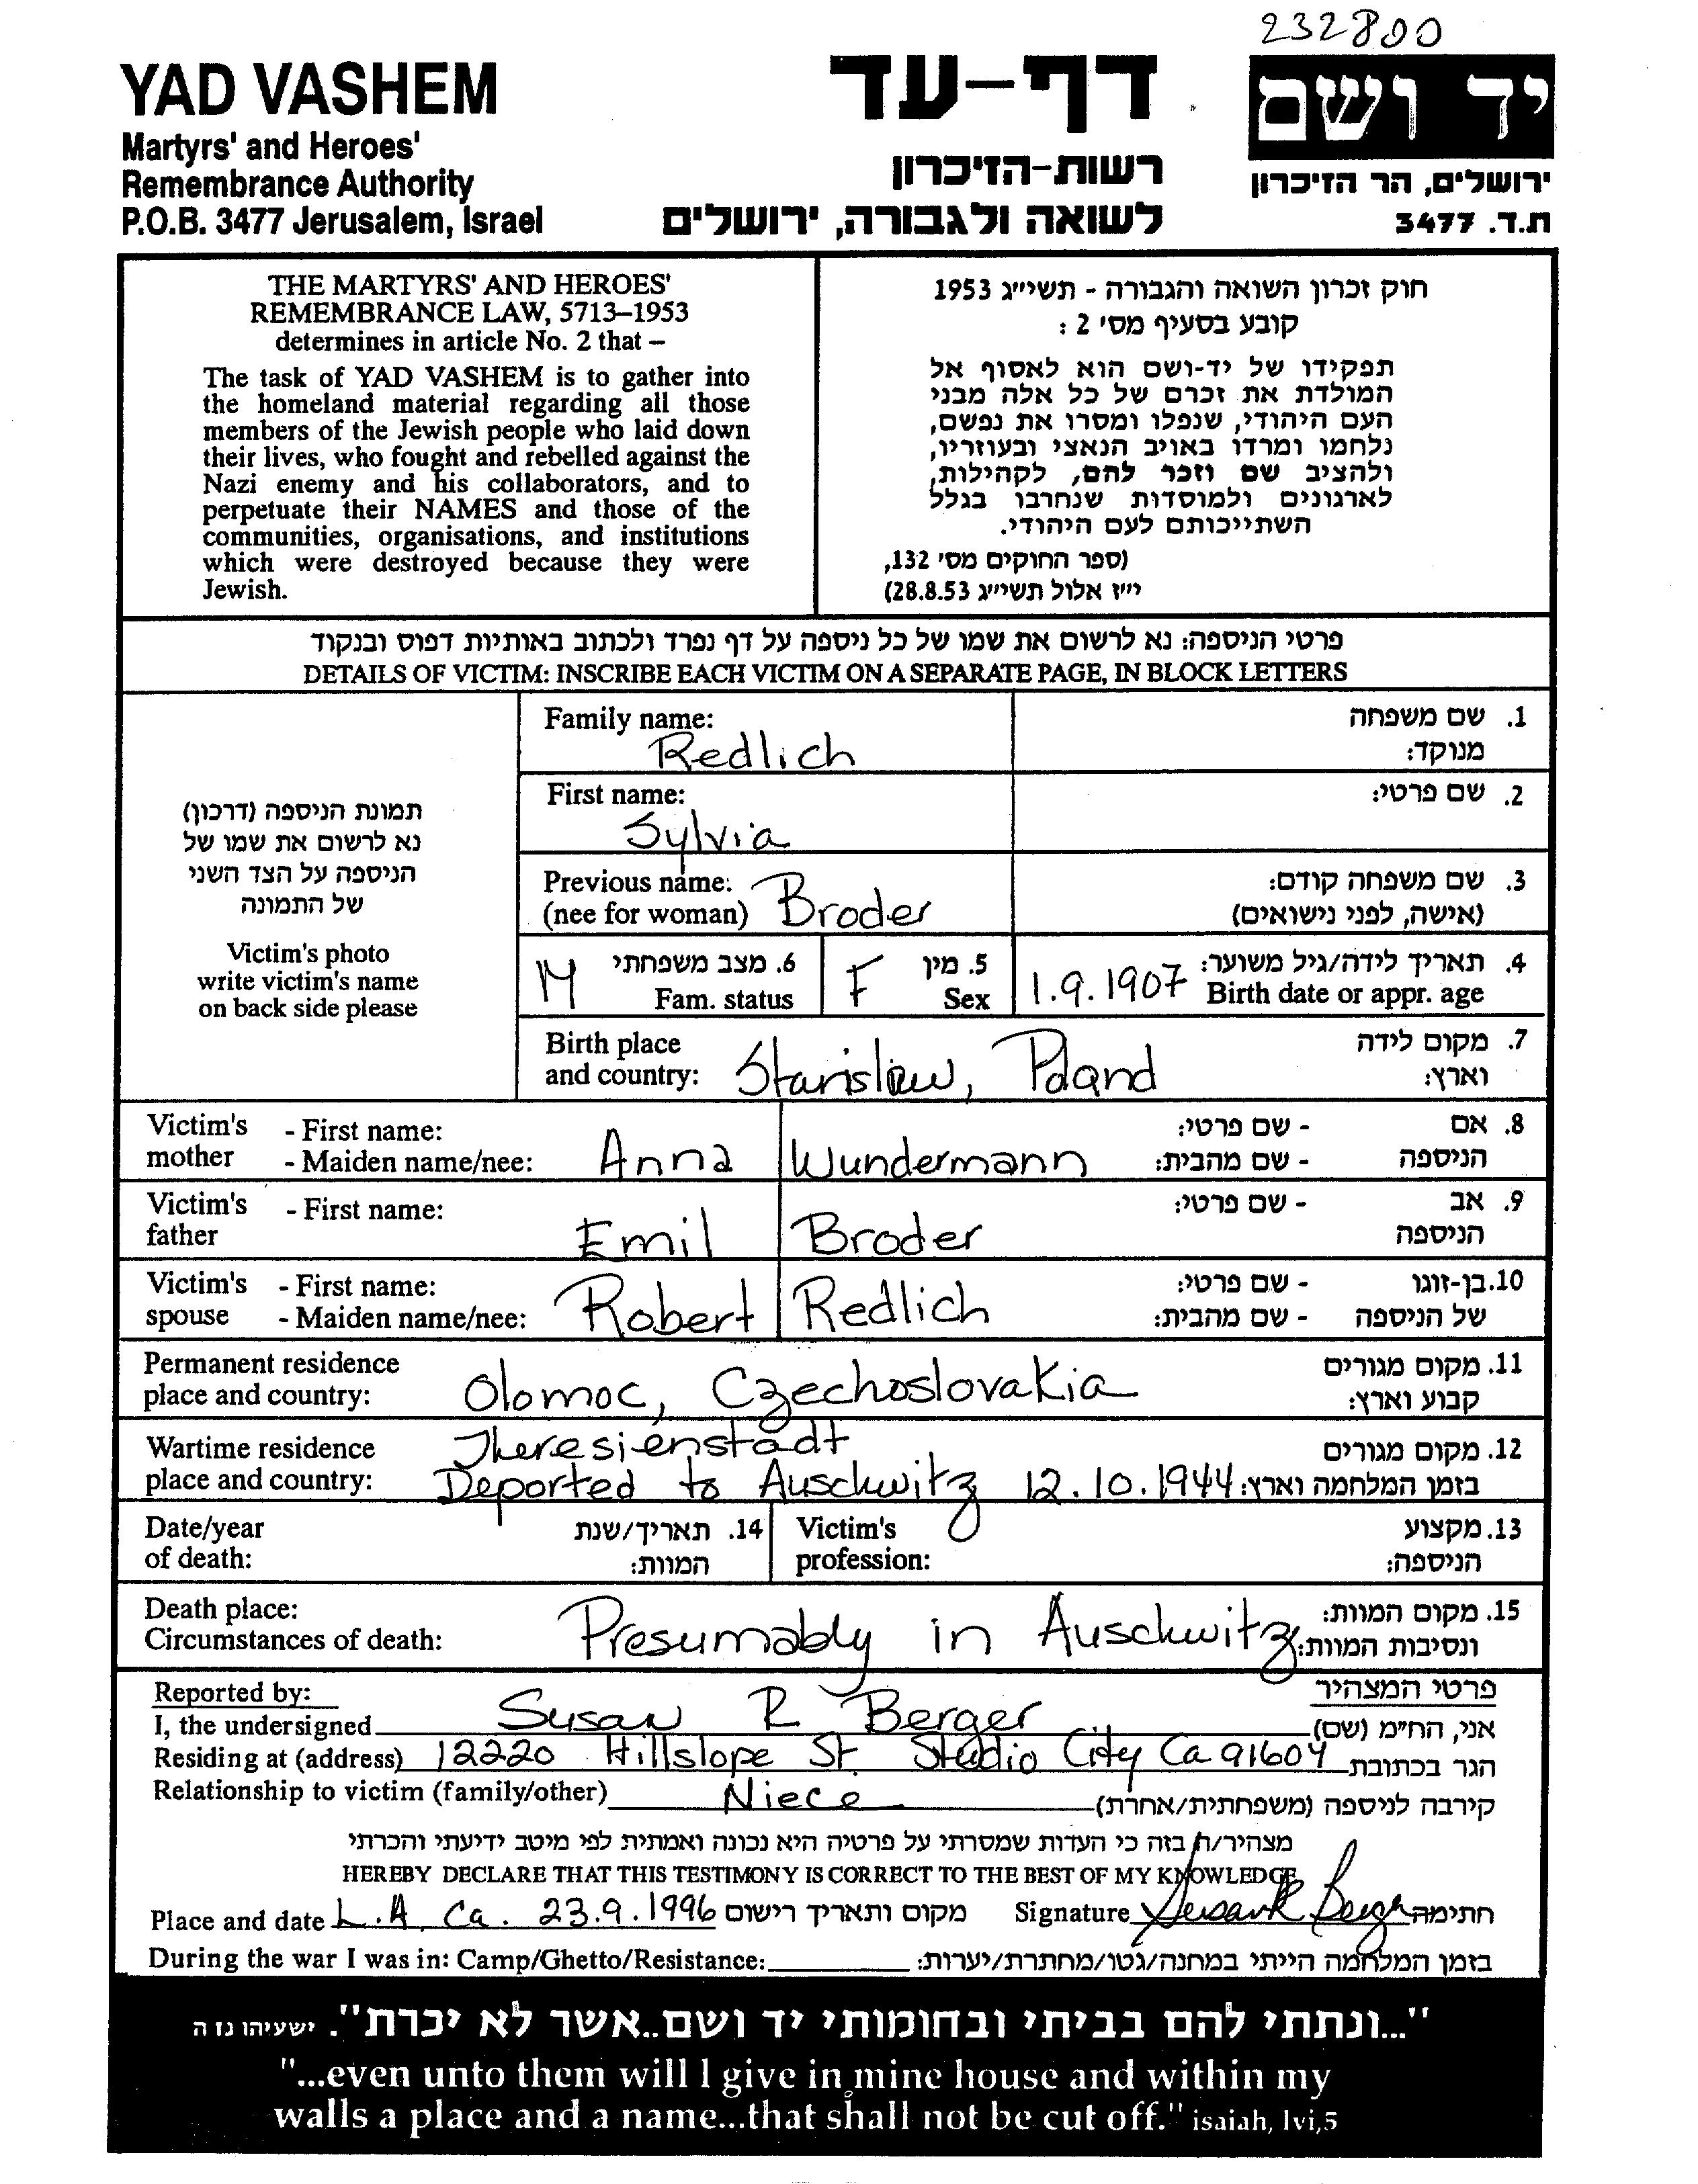 232800
YAD VASHEM
Martyrs' and Heroes'
Remembrance Authority
P.O.B. 3477 Jerusalem, Israel
דף-עד
רשות-הזיכרון
לשואה ולגבורה, ירושלים
יד ושם
ירושלים, הר הזיכרון
ת.ד. 3477
THE MARTYRS' AND HEROES'
REMEMBRANCE LAW, 5713–1953
determines in article No. 2 that –
The task of YAD VASHEM is to gather into
the homeland material regarding all those
members of the Jewish people who laid down
their lives, who fought and rebelled against the
Nazi enemy and his collaborators, and to
perpetuate their NAMES and those of the
communities, organisations, and institutions
which were destroyed because they were
Jewish.
חוק זכרון השואה והגבורה - תשי״ג 1953
קובע בסעיף מס׳ 2 :
תפקידו של יד-ושם הוא לאסוף אל
המולדת את זכרם של כל אלה מבני
העם היהודי, שנפלו ומסרו את נפשם,
נלחמו ומרדו באויב הנאצי ובעוזריו,
ולהציב שם וזכר להם, לקהילות,
לארגונים ולמוסדות שנחרבו בגלל
השתייכותם לעם היהודי.
(ספר החוקים מס׳ 132,
י״ז אלול תשי״ג 28.8.53)
פרטי הניספה: נא לרשום את שמו של כל ניספה על דף נפרד ולכתוב באותיות דפוס ובנקוד
DETAILS OF VICTIM: INSCRIBE EACH VICTIM ON A SEPARATE PAGE, IN BLOCK LETTERS
תמונת הניספה (דרכון)
נא לרשום את שמו של
הניספה על הצד השני
של התמונה
Victim's photo
write victim's name
on back side please
Family name: 1. שם משפחה
Redlich מנוקד:
First name: 2. שם פרטי:
Sylvia
Previous name: 3. שם משפחה קודם:
(nee for woman) Broder (אישה, לפני נישואים)
M 6. מצב משפחתי F 5. מין 1.9.1907 4. תאריך לידה/גיל משוער:
Fam. status Sex Birth date or appr. age
Birth place 7. מקום לידה
and country: Stanislaw, Poland וארץ:
Victim's - First name: - שם פרטי: 8. אם
mother - Maiden name/nee: Anna Wundermann - שם מהבית: הניספה
Victim's - First name: - שם פרטי: 9. אב
father Emil Broder הניספה
Victim's - First name: - שם פרטי: 10. בן-זוגו
spouse - Maiden name/nee: Robert Redlich - שם מהבית: של הניספה
Permanent residence 11. מקום מגורים
place and country: Olomoc, Czechoslovakia קבוע וארץ:
Wartime residence Theresienstadt 12. מקום מגורים
place and country: Deported to Auschwitz 12.10.1944 בזמן המלחמה וארץ:
Date/year 14. תאריך/שנת Victim's 13. מקצוע
of death: המוות: profession: הניספה:
Death place: 15. מקום המוות:
Circumstances of death: Presumably in Auschwitz ונסיבות המוות:
Reported by: פרטי המצהיר
I, the undersigned Susan R Berger אני, הח״מ (שם)
Residing at (address) 12220 Hillslope St. Studio City Ca 91604 הגר בכתובת
Relationship to victim (family/other) Niece קירבה לניספה (משפחתית/אחרת)
מצהיר/ה בזה כי העדות שמסרתי על פרטיה היא נכונה ואמתית לפי מיטב ידיעתי והכרתי
HEREBY DECLARE THAT THIS TESTIMONY IS CORRECT TO THE BEST OF MY KNOWLEDGE
Place and date L.A. Ca. 23.9.1996 מקום ותאריך רישום Signature Susan R Berger חתימה
During the war I was in: Camp/Ghetto/Resistance: בזמן המלחמה הייתי במחנה/גטו/מחתרת/יערות:
"...ונתתי להם בביתי ובחומותי יד ושם..אשר לא יכרת". ישעיהו נז ה
"...even unto them will I give in mine house and within my
walls a place and a name...that shall not be cut off." isaiah, lvi,5